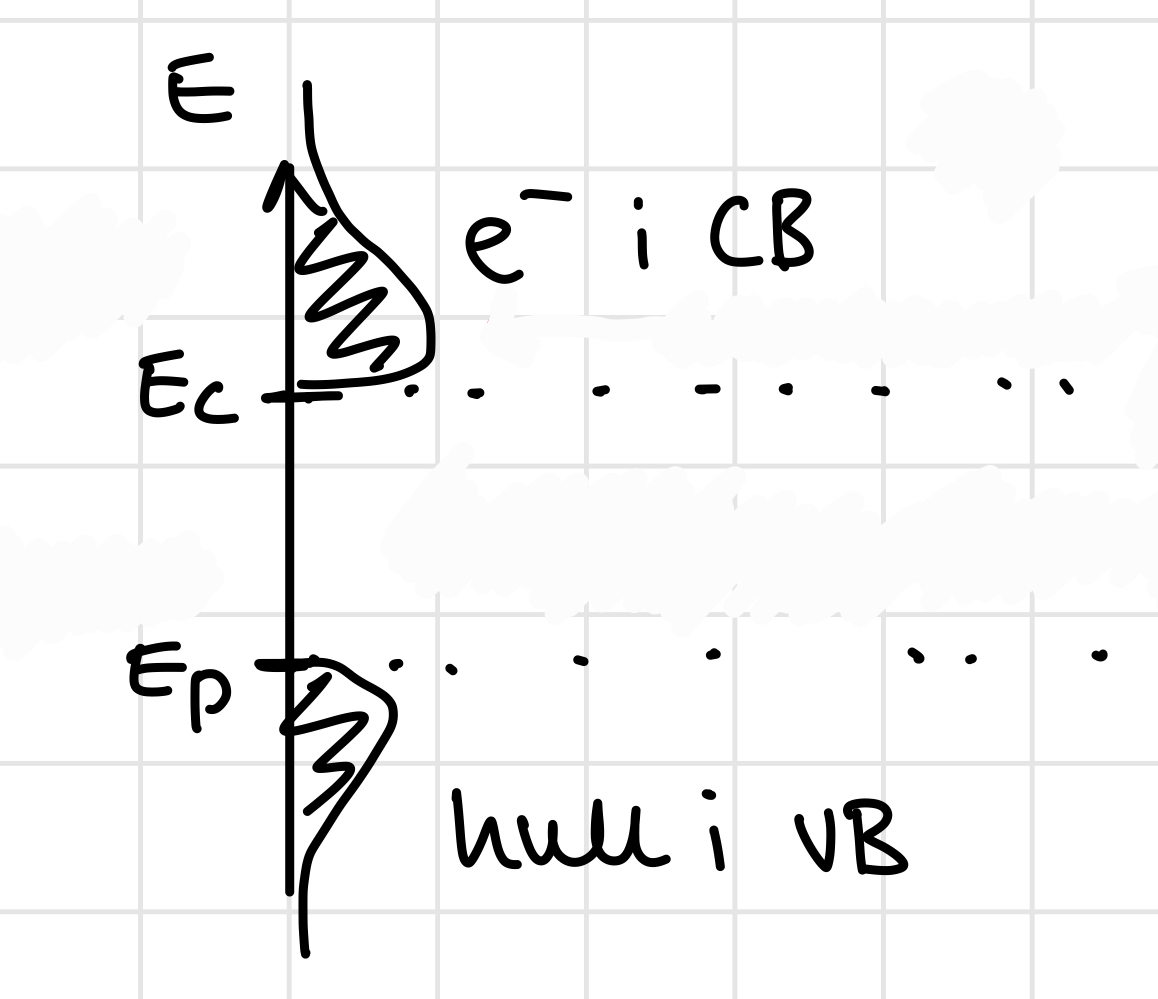 E
e⁻ i CB
Ec
Ep
hull i VB